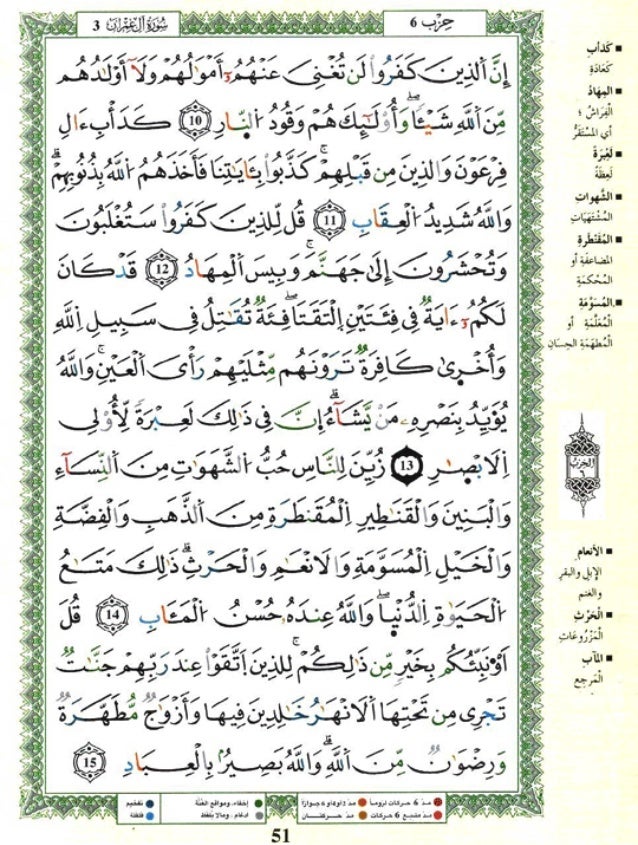 حِزب 6
سُورَةُ آلِ عِمْرَان 3
إِنَّ اَ۬لذِينَ كَفَرُواْ لَن تُغْنِيَ عَنْهُمُۥٓ أَمْوَٰلُهُمْ وَلَآ أَوْلَٰدُهُم
مِّنَ اَ۬للَّهِ شَيْـٔاٗۖ وَأُوْلَٰٓئِكَ هُمْ وَقُودُ اُ۬لنّ۪ارِ 10 كَدَأْبِ ءَالِ
فِرْعَوْنَ وَالذِينَ مِن قَبْلِهِمْۚ كَذَّبُواْ بِـَٔايَٰتِنَا فَأَخَذَهُمُ اُ۬للَّهُ بِذُنُوبِهِمْۗ
وَاللَّهُ شَدِيدُ اُ۬لْعِقَابِ 11 قُل لِّلذِينَ كَفَرُواْ سَتُغْلَبُونَ
وَتُحْشَرُونَ إِلَىٰ جَهَنَّمَۚ وَبِيسَ اَ۬لْمِهَادُ 12 قَدْ كَانَ
لَكُمُۥٓ ءَايَةٞ فِي فِئَتَيْنِ اِ۪لْتَقَتَاۖ فِئَةٞ تُقَٰتِلُ فِي سَبِيلِ اِ۬للَّهِ
وَأُخْرَىٰ كَافِرَةٞ تَرَوْنَهُم مِّثْلَيْهِمْ رَأْيَ اَ۬لْعَيْنِۚ وَاللَّهُ
يُؤَيِّدُ بِنَصْرِهِۦ مَنْ يَّشَآءُۗ إِنَّ فِي ذَٰلِكَ لَعِبْرَةٗ لِّأُوْلِي
اِ۬لَابْصٰ۪رِ 13 زُيِّنَ لِلنَّاسِ حُبُّ اُ۬لشَّهَوَٰتِ مِنَ اَ۬لنِّسَآءِ
وَالْبَنِينَ وَالْقَنَٰطِيرِ اِ۬لْمُقَنطَرَةِ مِنَ اَ۬لذَّهَبِ وَالْفِضَّةِ
وَالْخَيْلِ اِ۬لْمُسَوَّمَةِ وَالَانْعَٰمِ وَالْحَرْثِۗ ذَٰلِكَ مَتَٰعُ
اُ۬لْحَيَوٰةِ اِ۬لدُّنْي۪اۖ وَاللَّهُ عِندَهُۥ حُسْنُ اُ۬لْمَـَٔابِ 14 قُلَ
اَوُ۟نَبِّئُكُم بِخَيْرٖ مِّن ذَٰلِكُمْۖ لِلذِينَ اَ۪تَّقَوْاْ عِندَ رَبِّهِمْ جَنَّٰتٞ
تَجْرِي مِن تَحْتِهَا اَ۬لَانْهَٰرُ خَٰلِدِينَ فِيهَا وَأَزْوَٰجٞ مُّطَهَّرَةٞ
وَرِضْوَٰنٞ مِّنَ اَ۬للَّهِۗ وَاللَّهُ بَصِيرُۢ بِالْعِبَادِ 15
كَدَأْبِ
كَعَادَةِ
المِهَادُ
الفِرَاشُ ؛
أي المسْتَقَرُّ
لَعِبْرَةً
لَعِظَةً
الشَّهَوات
المُشْتَهَيَاتِ
المُقَنْطَرَةِ
المضاعَفَةِ أو
المُحْكَمَةِ
المُسَوَّمَةِ
المُعَلَّمَةِ أو
المُطَهَّمَةِ الحِسَانِ
الحِزْبُ
٦
الأَنعام
الإبل والبقر
والغنم
الْحَرْثِ
الْمَزْرُوعَاتِ
المآب
المَرجِع
مدّ 6 حركات لزوماً
مدّ 2 او 4 او 6 جوازاً
إخفاء، ومواقع الغُنَّة
تفخيم
مدّ مشبع 6 حركات
مدّ حركتان
ادغام، وما لا يُلفظ
قلقلة
51